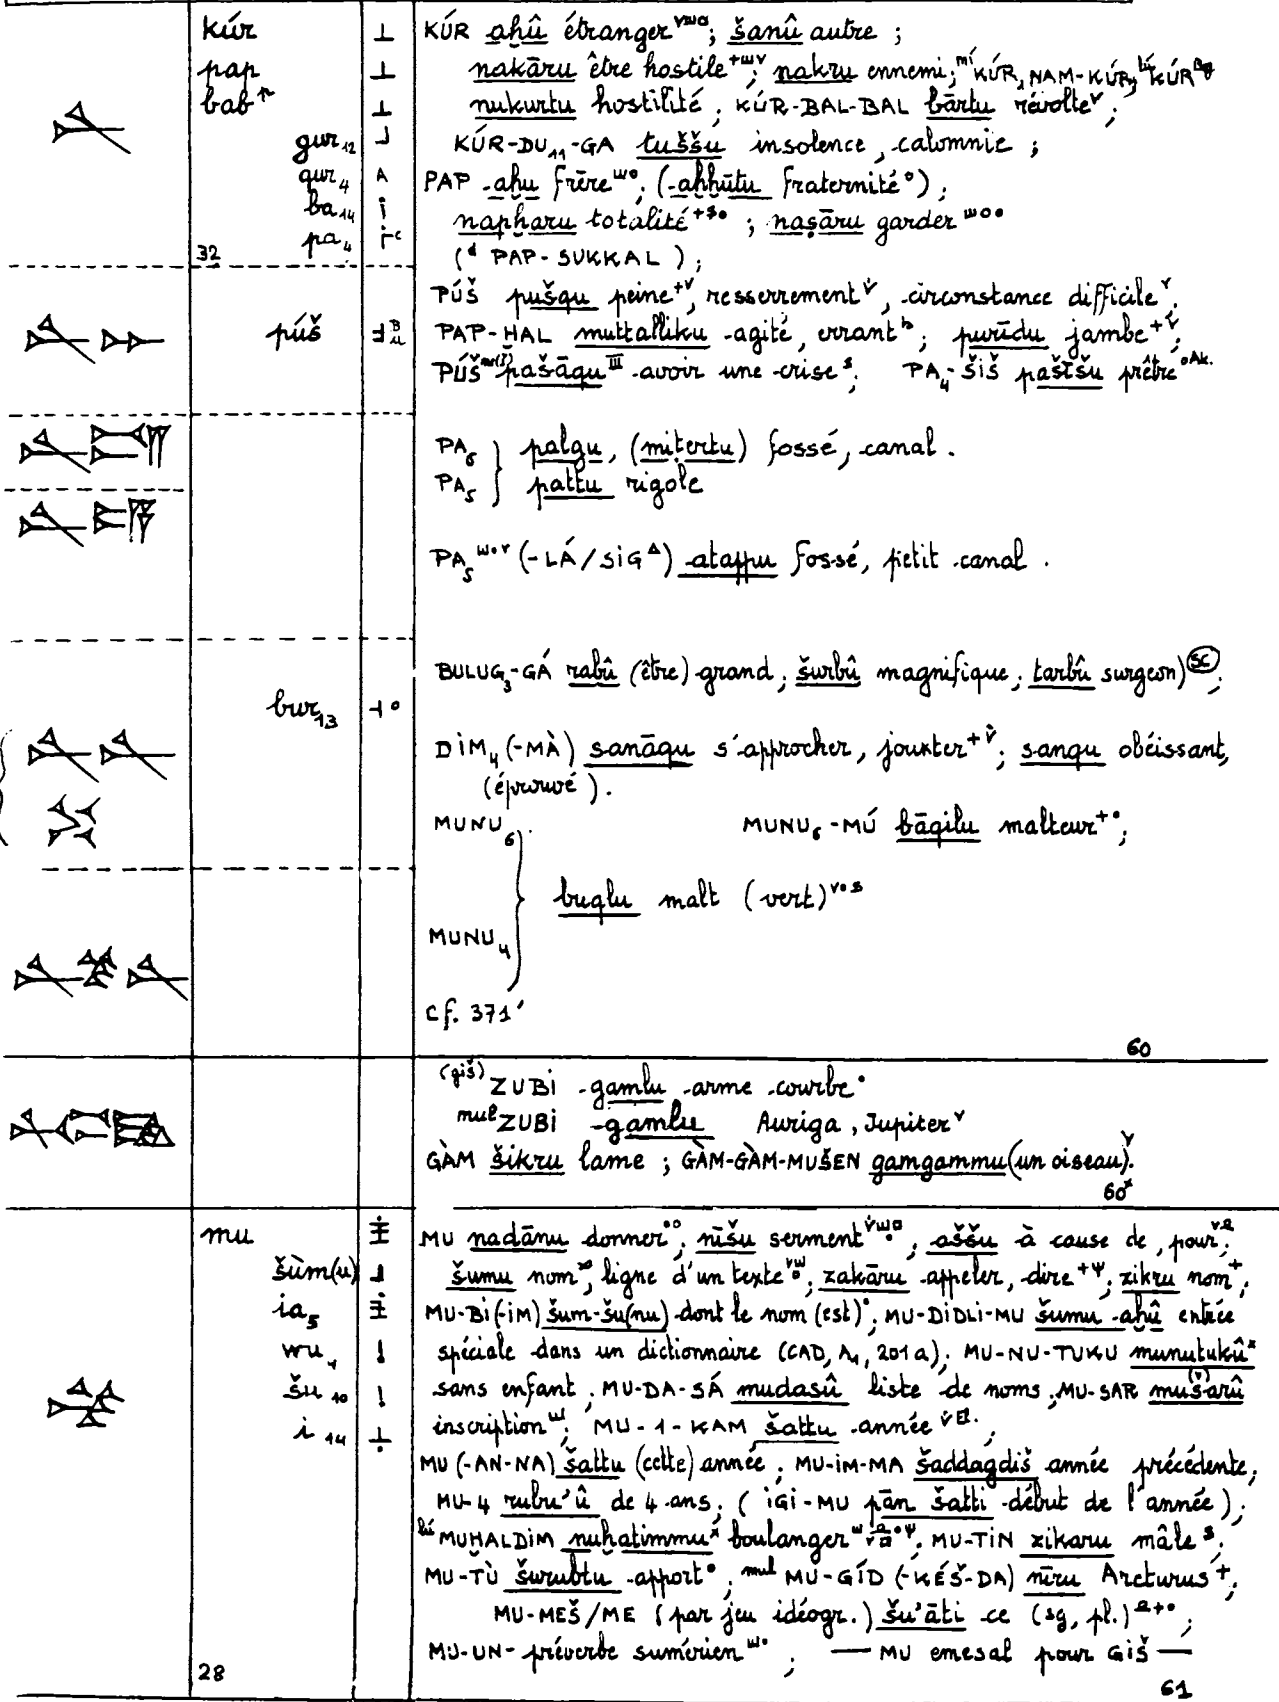 kúr KÚR aḫû étranger ; šanû autre ;
pap nakāru être hostile ; nakru ennemi ; mí KÚR, NAM-KÚR, lú KÚR
bab nukurtu hostilité ; KÚR-BAL-BAL bārtu révolte ;
gur₁₂ KÚR-DU₁₁-GA tuššu insolence, calomnie ;
qur₄ PAP aḫu frère ; (aḫḫūtu fraternité) ;
ba₁₄ napḫaru totalité ; naṣāru garder
32 pa₄ (ᵈ PAP-SUKKAL) ;
PÚŠ pušqu peine, resserrement, circonstance difficile ;
púš PAP-ḪAL muttalliku agité, errant ; purīdu jambe ;
PÚŠ pašāqu III avoir une crise ; PA₄-ŠIŠ pašīšu prêtre
PA₆ palgu, (miṭertu) fossé, canal .
PA₅ pattu rigole
PA₅ (-LÁ/SIG) atappu fossé, petit canal .
BULUG₃-GÁ rabû (être) grand ; šurbû magnifique ; tarbû surgeon) SC ;
bur₁₃
DÌM₄ (-MÀ) sanāqu s'approcher, jouxter ; sanqu obéissant,
(éprouvé).
MUNU₆ MUNU₆-MÚ bāqilu malteur ;
buqlu malt (vert)
MUNU₄
Cf. 371'
60
(giš) ZUBI gamlu arme courbe
mul ZUBI gamlu Auriga, Jupiter
GÀM šikru lame ; GÀM-GÀM-MUŠEN gamgammu (un oiseau).
60ˣ
mu MU nadānu donner ; nīšu serment ; aššu à cause de, pour ;
šùm(u) šumu nom, ligne d'un texte ; zakāru appeler, dire ; zikru nom ;
ia₅ MU-BI(-IM) šum-šu(nu) dont le nom (est) ; MU-DIDLI-MU šumu aḫû entrée
wu₄ spéciale dans un dictionnaire (CAD, A₁, 201a) ; MU-NU-TUKU munutukû
šu₁₀ sans enfant ; MU-DA-SÁ mudasû liste de noms ; MU-SAR mušarû
i₁₄ inscription ; MU-1-KAM šattu année ;
MU (-AN-NA) šattu (cette) année ; MU-IM-MA šaddagdiš année précédente ;
MU-4 rubu'û de 4 ans ; (IGI-MU pān šatti début de l'année) ;
lú MUḪALDIM nuḫatimmu boulanger ; MU-TIN zikaru mâle ;
MU-TÙ šurubtu apport ; mul MU-GÍD (-KÉŠ-DA) nīru Arcturus ;
MU-MEŠ/ME (par jeu idéogr.) šu'āti ce (sg, pl.) ;
28 MU-UN- préverbe sumérien ; — MU emesal pour GIŠ —
61